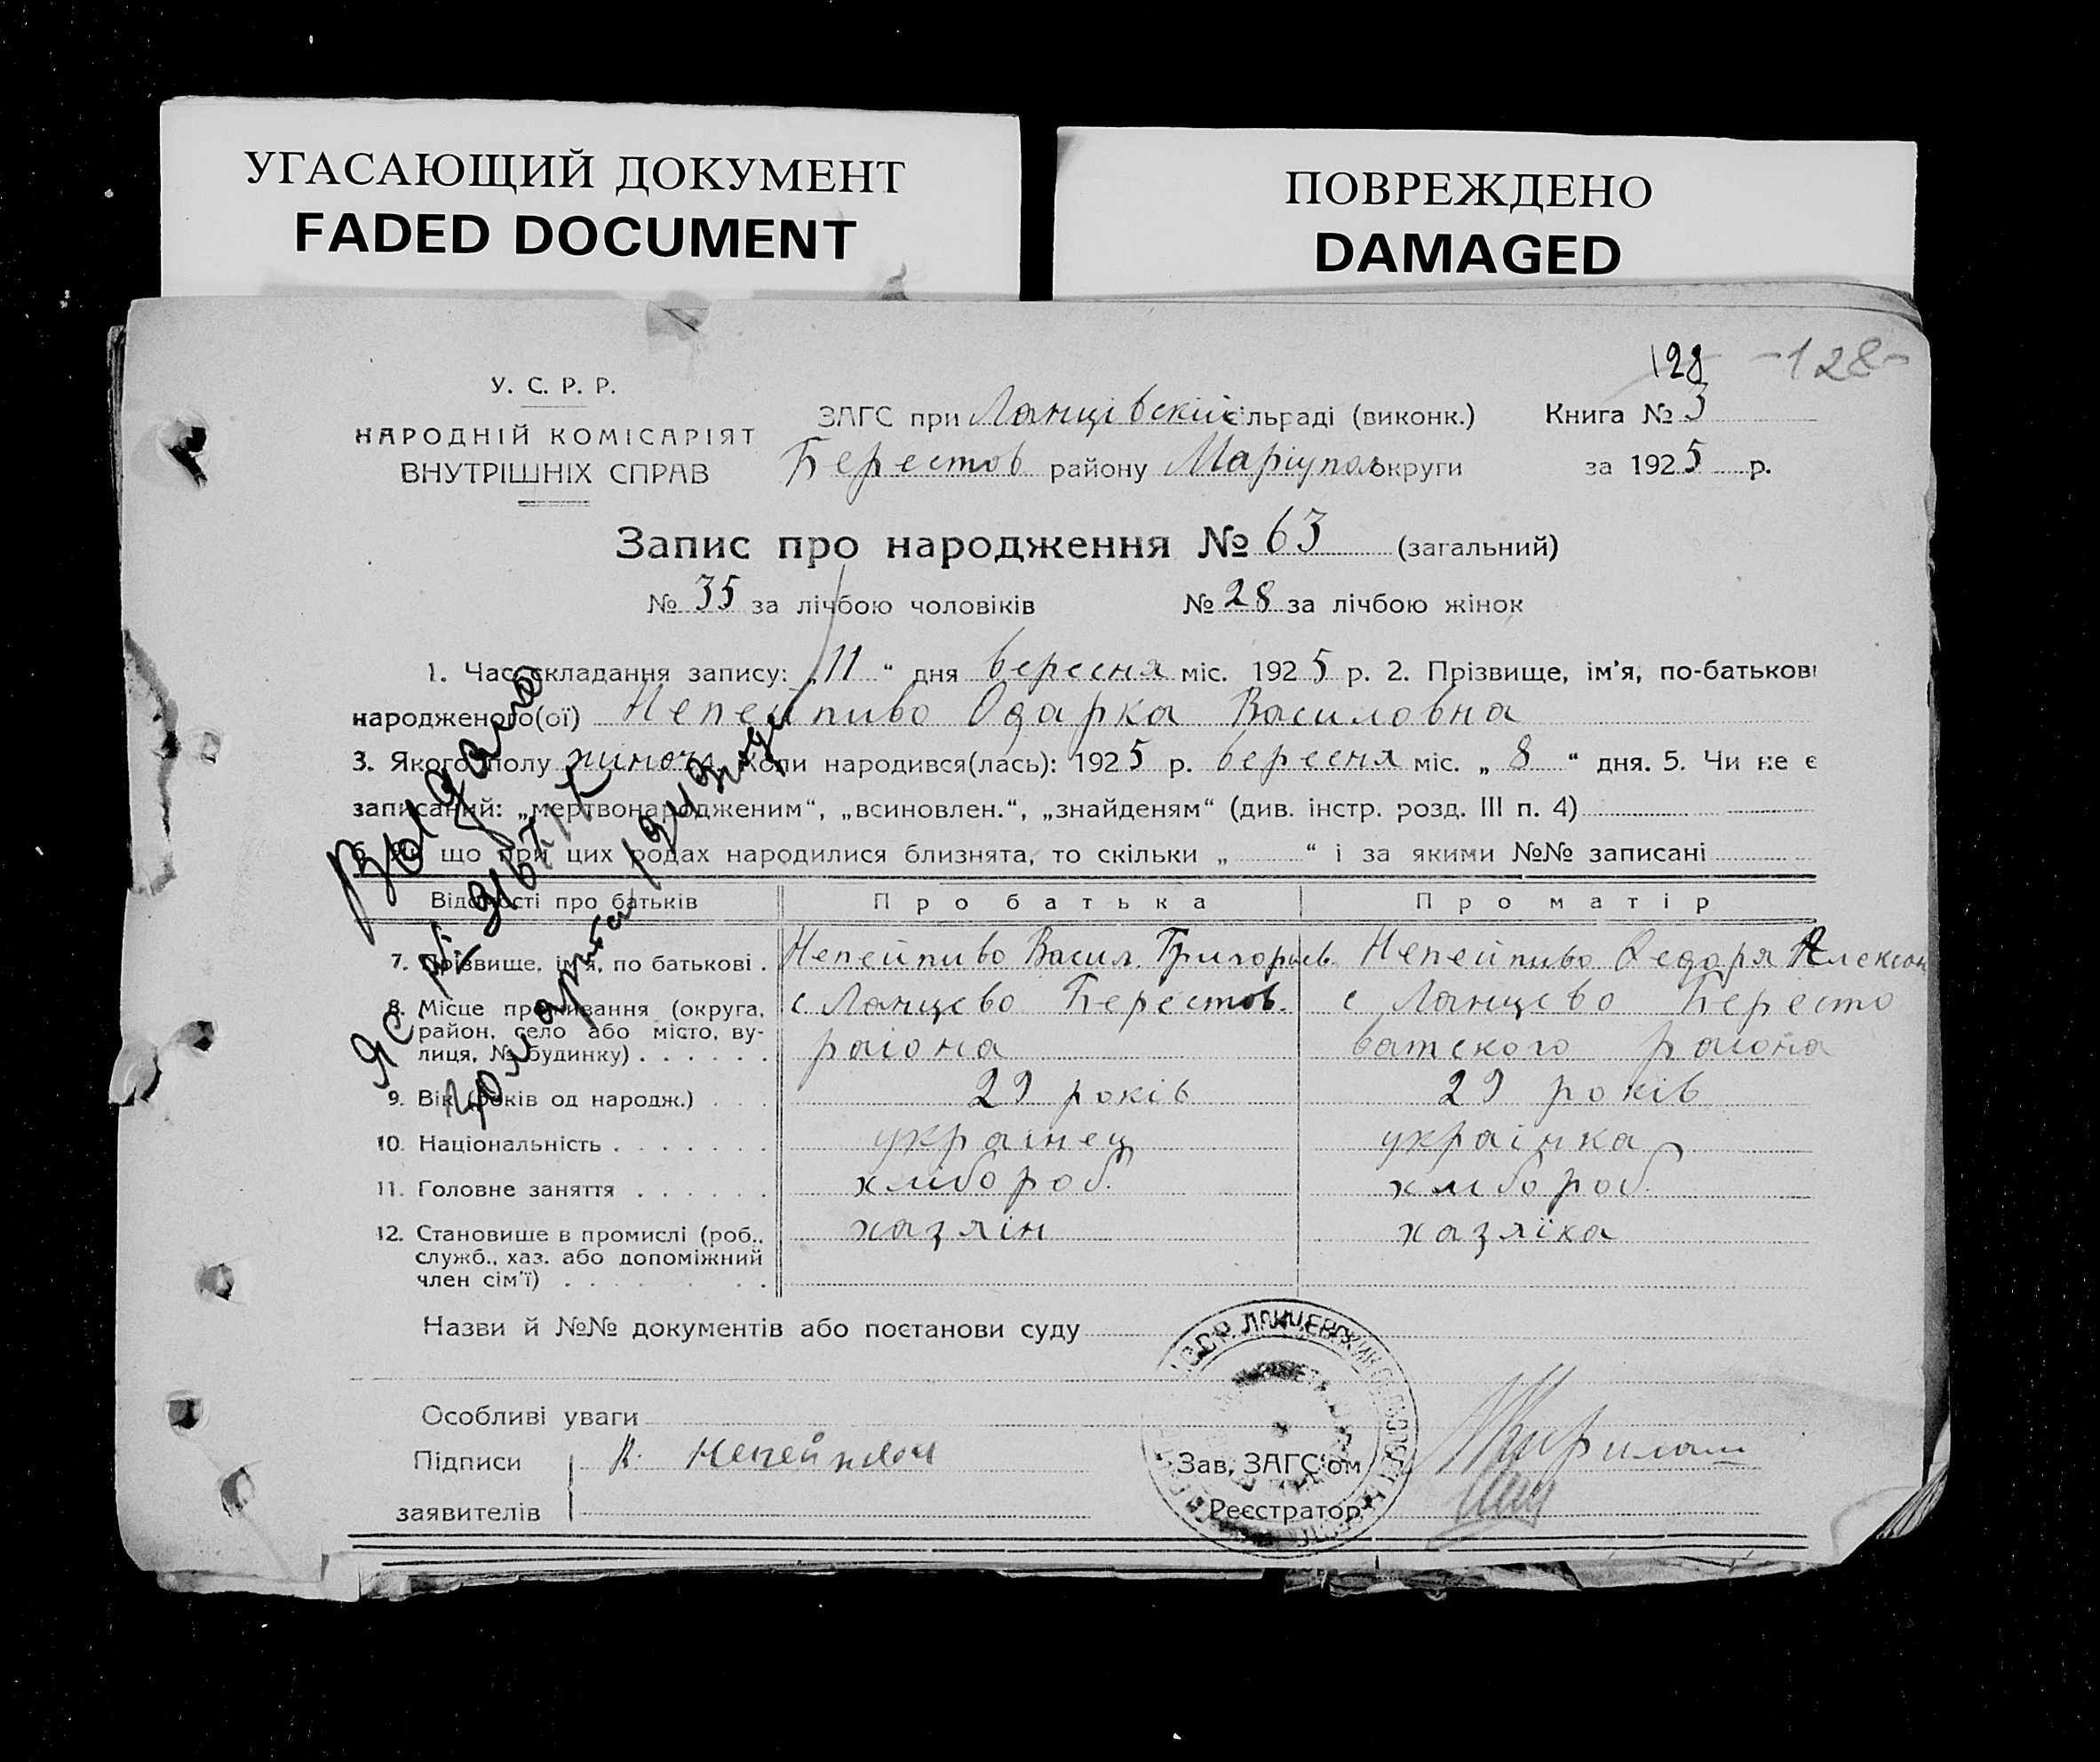 УГАСАЮЩИЙ ДОКУМЕНТ
FADED DOCUMENT
ПОВРЕЖДЕНО
DAMAGED
128 -128-
У. С. Р. Р.
НАРОДНІЙ КОМІСАРІЯТ
ВНУТРІШНІХ СПРАВ
ЗАГС при Ланцівській сільраді (виконк.) Книга № 3
Берестов району Маріупол округи за 1925 р.
Запис про народження № 63 (загальний)
№ 35 за лічбою чоловіків № 28 за лічбою жінок
1. Час складання запису: „11“ дня вересня міс. 1925 р. 2. Прізвище, ім'я, по-батькові
народженого(ої) Непейпиво Одарка Василовна
3. Якого полу жіноч. Коли народився(лась): 1925 р. вересня міс. „8“ дня. 5. Чи не є
записаний: „мертвонародженим“, „всиновлен.“, „знайденям“ (див. інстр. розд. III п. 4)
що при цих родах народилися близнята, то скільки „ “ і за якими №№ записані
Відомості про батьків Про батька Про матір
7. Прізвище, ім'я, по батькові . Непейпиво Васил. Григорьев. Непейпиво Федоря Алексан
8. Місце проживання (округа, с Ланцево Берестов. с Ланцево Бересто
район, село або місто, ву-
лиця, № будинку) . . . . . . раіона ватского раіона
9. Вік (років од народж.) . . . 29 років 29 років
10. Національність . . . . . . . украінец украінка
11. Головне заняття . . . . . . хлібороб. хлібороб.
12. Становище в промислі (роб., хазяін хазяїка
служб., хаз. або допоміжний
член сім'ї) . . . . . . . .
Выдано
Назви й №№ документів або постанови суду
Особливі уваги
Підписи В. Непейпиво
Зав. ЗАГС'ом
заявителів
Реєстратор